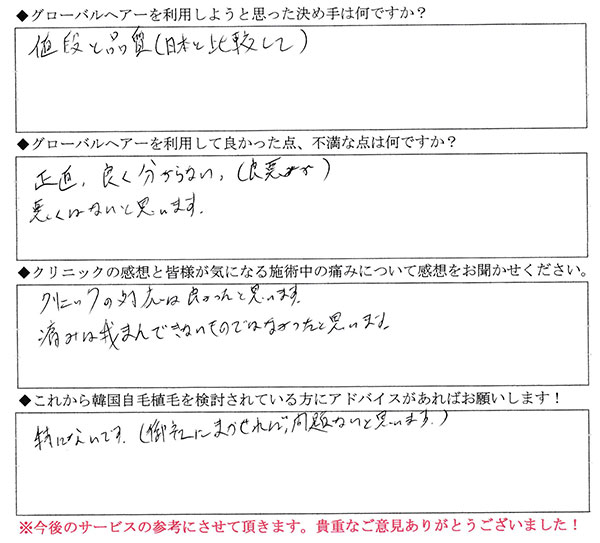 ◆グローバルヘアーを利用しようと思った決め手は何ですか？
値段と品質(日本と比較して)
◆グローバルヘアーを利用して良かった点、不満な点は何ですか？
正直、良く分からない、(良悪が)
悪くはないと思います。
◆クリニックの感想と皆様が気になる施術中の痛みについて感想をお聞かせください。
クリニックの対応は良かったと思います。
痛みは我まんできないものではなかったと思います。
◆これから韓国自毛植毛を検討されている方にアドバイスがあればお願いします！
特にないです。(御社にまかせれば、問題ないと思います。)
※今後のサービスの参考にさせて頂きます。貴重なご意見ありがとうございました！